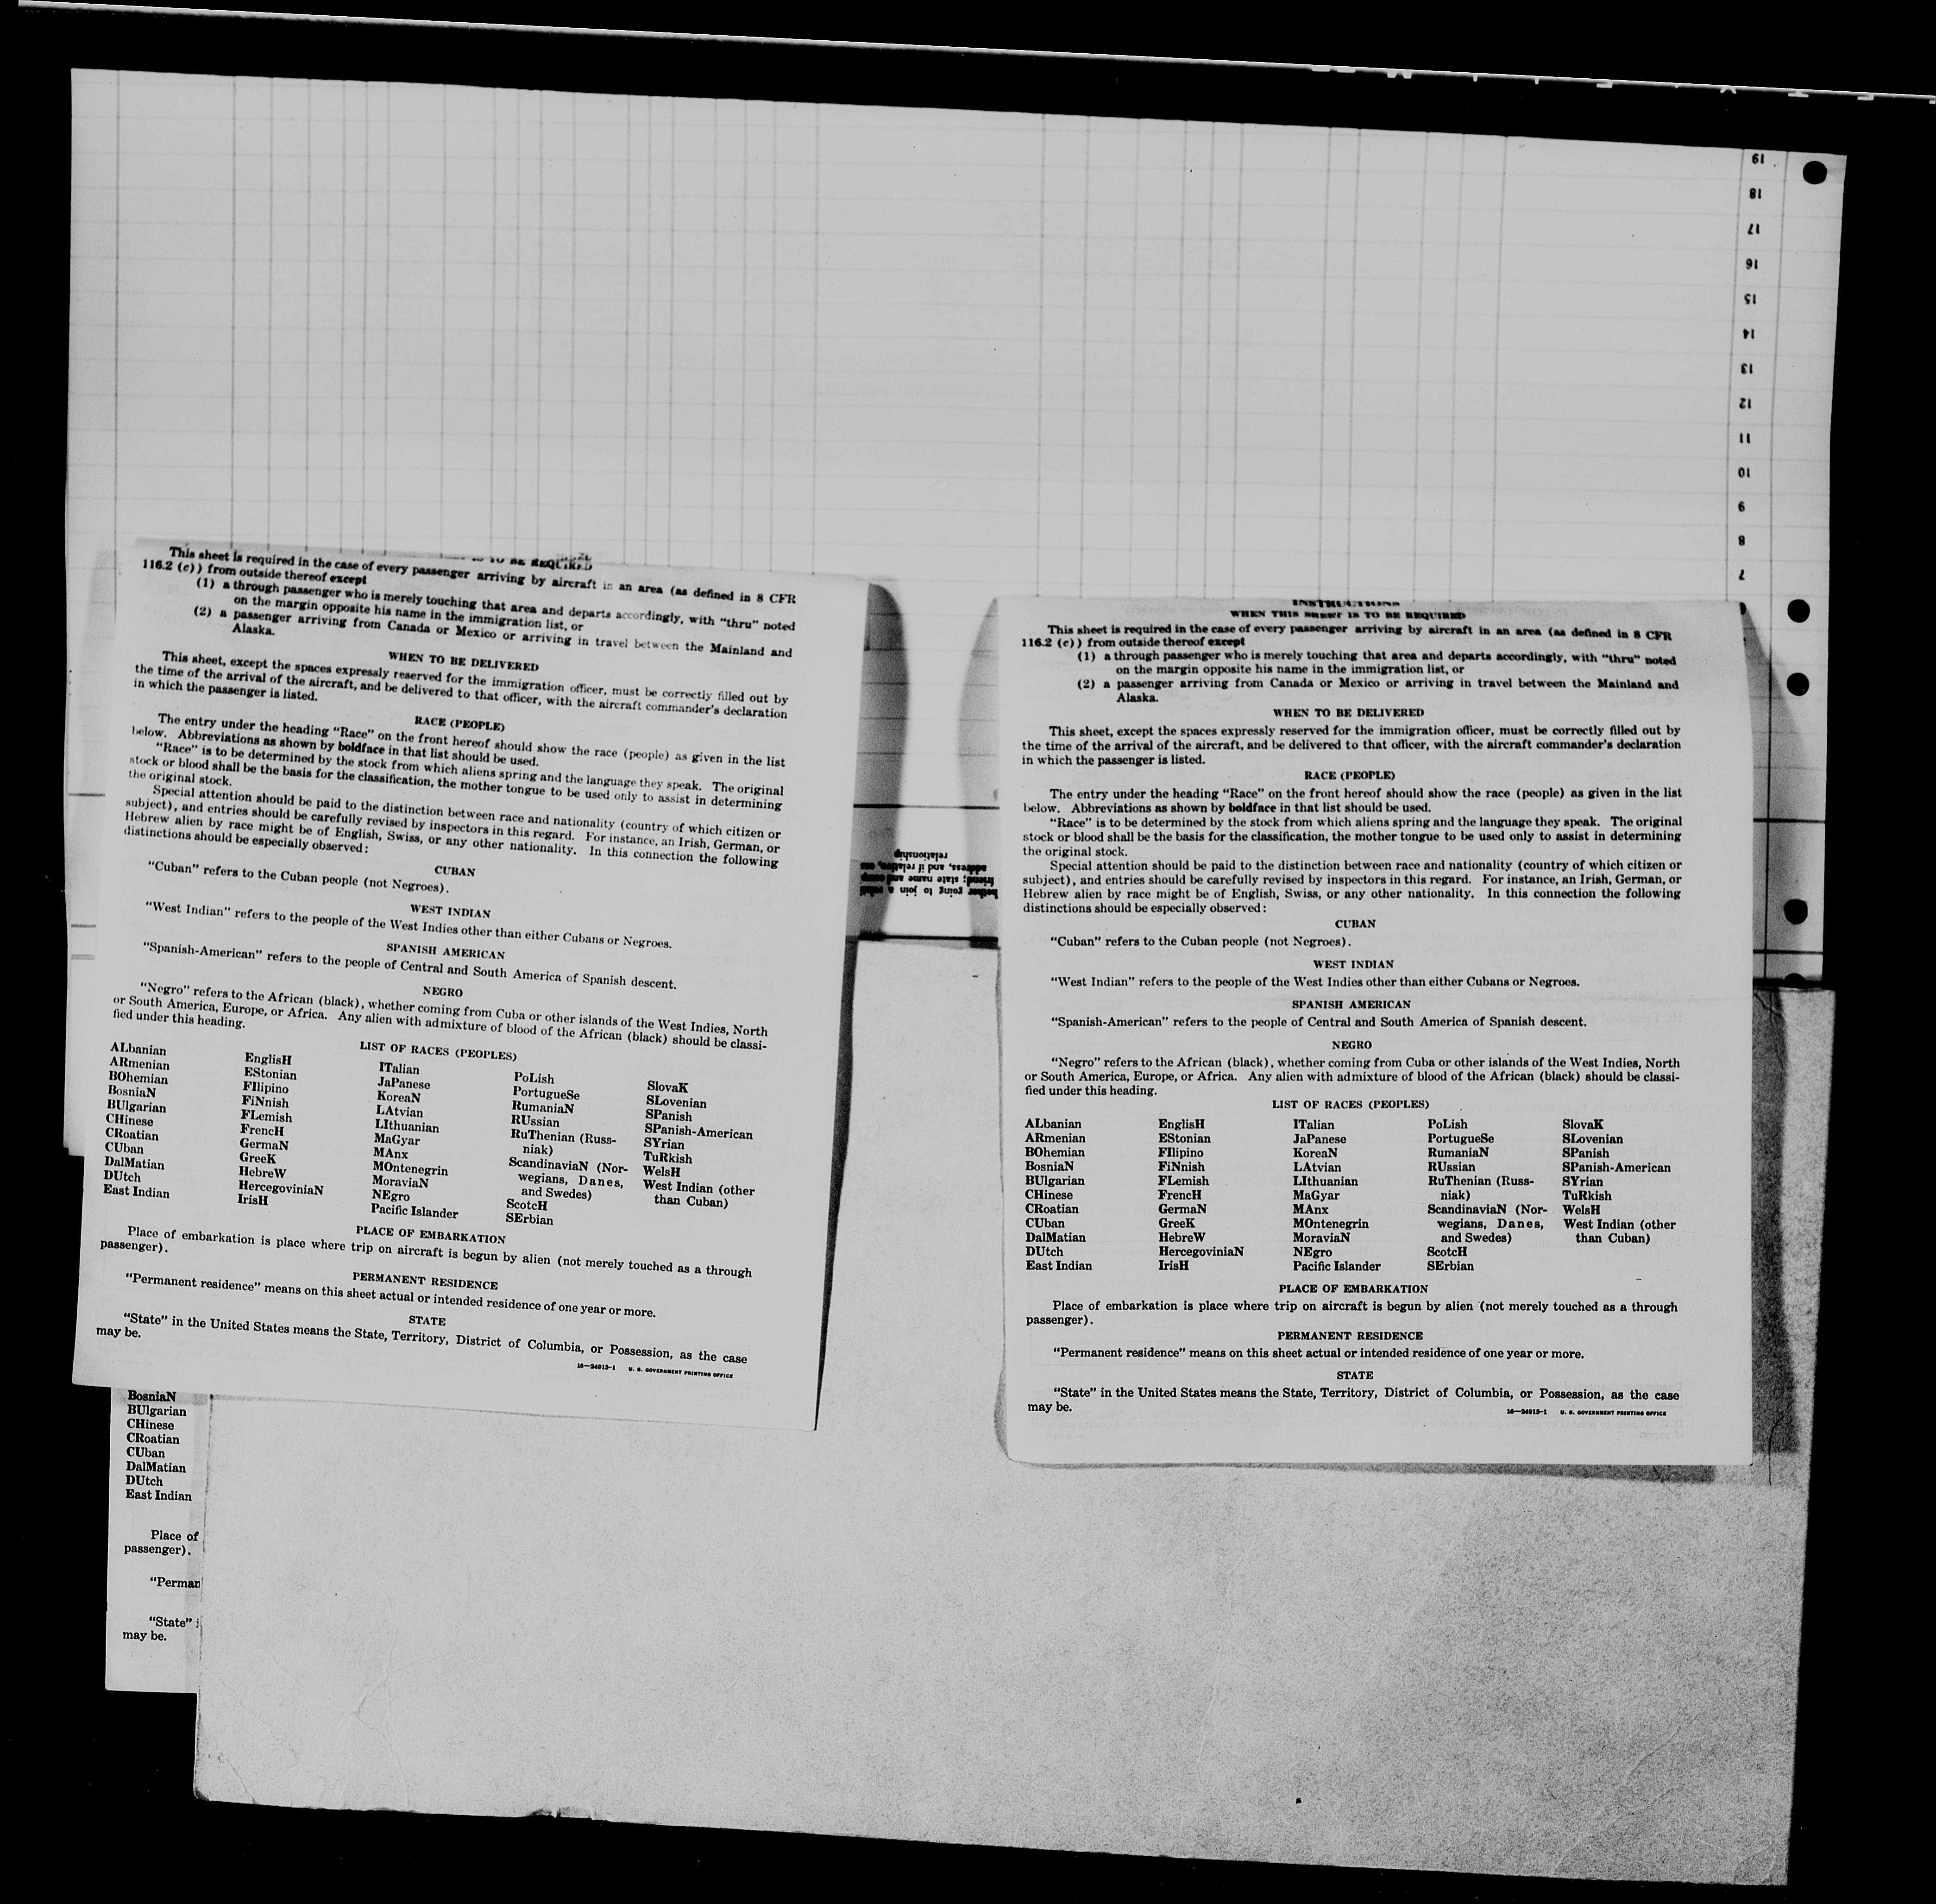 19
18
17
16
15
14
13
12
11
10
9
8
7
IS TO BE REQUIRED
This sheet is required in the case of every passenger arriving by aircraft in an area (as defined in 8 CFR
116.2 (c)) from outside thereof except
(1) a through passenger who is merely touching that area and departs accordingly, with "thru" noted
on the margin opposite his name in the immigration list, or
(2) a passenger arriving from Canada or Mexico or arriving in travel between the Mainland and
Alaska.
WHEN TO BE DELIVERED
This sheet, except the spaces expressly reserved for the immigration officer, must be correctly filled out by
the time of the arrival of the aircraft, and be delivered to that officer, with the aircraft commander's declaration
in which the passenger is listed.
RACE (PEOPLE)
The entry under the heading "Race" on the front hereof should show the race (people) as given in the list
below. Abbreviations as shown by boldface in that list should be used.
"Race" is to be determined by the stock from which aliens spring and the language they speak. The original
stock or blood shall be the basis for the classification, the mother tongue to be used only to assist in determining
the original stock.
Special attention should be paid to the distinction between race and nationality (country of which citizen or
subject), and entries should be carefully revised by inspectors in this regard. For instance, an Irish, German, or
Hebrew alien by race might be of English, Swiss, or any other nationality. In this connection the following
distinctions should be especially observed:
CUBAN
"Cuban" refers to the Cuban people (not Negroes).
WEST INDIAN
"West Indian" refers to the people of the West Indies other than either Cubans or Negroes.
SPANISH AMERICAN
"Spanish-American" refers to the people of Central and South America of Spanish descent.
NEGRO
"Negro" refers to the African (black), whether coming from Cuba or other islands of the West Indies, North
or South America, Europe, or Africa. Any alien with admixture of blood of the African (black) should be classi-
fied under this heading.
LIST OF RACES (PEOPLES)
ALbanian
ARmenian
BOhemian
BosniaN
BUlgarian
CHinese
CRoatian
CUban
DalMatian
DUtch
East Indian
EnglisH
EStonian
FIlipino
FiNnish
FLemish
FrencH
GermaN
GreeK
HebreW
HercegoviniaN
IrisH
ITalian
JaPanese
KoreaN
LAtvian
LIthuanian
MaGyar
MAnx
MOntenegrin
MoraviaN
NEgro
Pacific Islander
PoLish
PortugueSe
RumaniaN
RUssian
RuThenian (Russ-
niak)
ScandinaviaN (Nor-
wegians, Danes,
and Swedes)
ScotcH
SErbian
SlovaK
SLovenian
SPanish
SPanish-American
SYrian
TuRkish
WelsH
West Indian (other
than Cuban)
PLACE OF EMBARKATION
Place of embarkation is place where trip on aircraft is begun by alien (not merely touched as a through
passenger).
PERMANENT RESIDENCE
"Permanent residence" means on this sheet actual or intended residence of one year or more.
STATE
"State" in the United States means the State, Territory, District of Columbia, or Possession, as the case
may be.
16—24915-1 U. S. GOVERNMENT PRINTING OFFICE
BosniaN
BUlgarian
CHinese
CRoatian
CUban
DalMatian
DUtch
East Indian
Place of
passenger).
"Perman
"State" i
may be.
going to join a
friend; state name and
address, and if relative,
relationship
INSTRUCTIONS
WHEN THIS SHEET IS TO BE REQUIRED
This sheet is required in the case of every passenger arriving by aircraft in an area (as defined in 8 CFR
116.2 (c)) from outside thereof except
(1) a through passenger who is merely touching that area and departs accordingly, with "thru" noted
on the margin opposite his name in the immigration list, or
(2) a passenger arriving from Canada or Mexico or arriving in travel between the Mainland and
Alaska.
WHEN TO BE DELIVERED
This sheet, except the spaces expressly reserved for the immigration officer, must be correctly filled out by
the time of the arrival of the aircraft, and be delivered to that officer, with the aircraft commander's declaration
in which the passenger is listed.
RACE (PEOPLE)
The entry under the heading "Race" on the front hereof should show the race (people) as given in the list
below. Abbreviations as shown by boldface in that list should be used.
"Race" is to be determined by the stock from which aliens spring and the language they speak. The original
stock or blood shall be the basis for the classification, the mother tongue to be used only to assist in determining
the original stock.
Special attention should be paid to the distinction between race and nationality (country of which citizen or
subject), and entries should be carefully revised by inspectors in this regard. For instance, an Irish, German, or
Hebrew alien by race might be of English, Swiss, or any other nationality. In this connection the following
distinctions should be especially observed:
CUBAN
"Cuban" refers to the Cuban people (not Negroes).
WEST INDIAN
"West Indian" refers to the people of the West Indies other than either Cubans or Negroes.
SPANISH AMERICAN
"Spanish-American" refers to the people of Central and South America of Spanish descent.
NEGRO
"Negro" refers to the African (black), whether coming from Cuba or other islands of the West Indies, North
or South America, Europe, or Africa. Any alien with admixture of blood of the African (black) should be classi-
fied under this heading.
LIST OF RACES (PEOPLES)
ALbanian
ARmenian
BOhemian
BosniaN
BUlgarian
CHinese
CRoatian
CUban
DalMatian
DUtch
East Indian
EnglisH
EStonian
FIlipino
FiNnish
FLemish
FrencH
GermaN
GreeK
HebreW
HercegoviniaN
IrisH
ITalian
JaPanese
KoreaN
LAtvian
LIthuanian
MaGyar
MAnx
MOntenegrin
MoraviaN
NEgro
Pacific Islander
PoLish
PortugueSe
RumaniaN
RUssian
RuThenian (Russ-
niak)
ScandinaviaN (Nor-
wegians, Danes,
and Swedes)
ScotcH
SErbian
SlovaK
SLovenian
SPanish
SPanish-American
SYrian
TuRkish
WelsH
West Indian (other
than Cuban)
PLACE OF EMBARKATION
Place of embarkation is place where trip on aircraft is begun by alien (not merely touched as a through
passenger).
PERMANENT RESIDENCE
"Permanent residence" means on this sheet actual or intended residence of one year or more.
STATE
"State" in the United States means the State, Territory, District of Columbia, or Possession, as the case
may be.
16—24915-1 U. S. GOVERNMENT PRINTING OFFICE